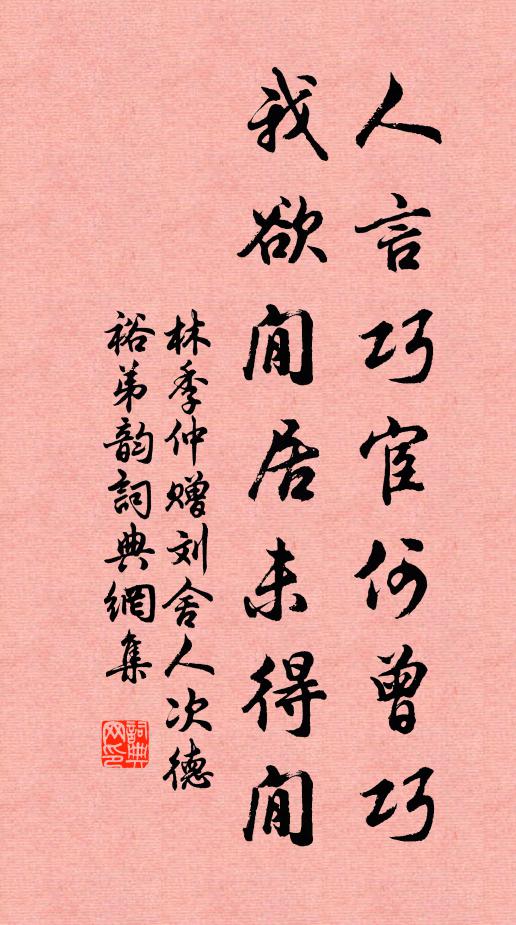 人言巧宦何曾巧
我欲闲居未得闲
林季仲赠刘舍人次德
裕弟韵詞典網集
詞典
网印